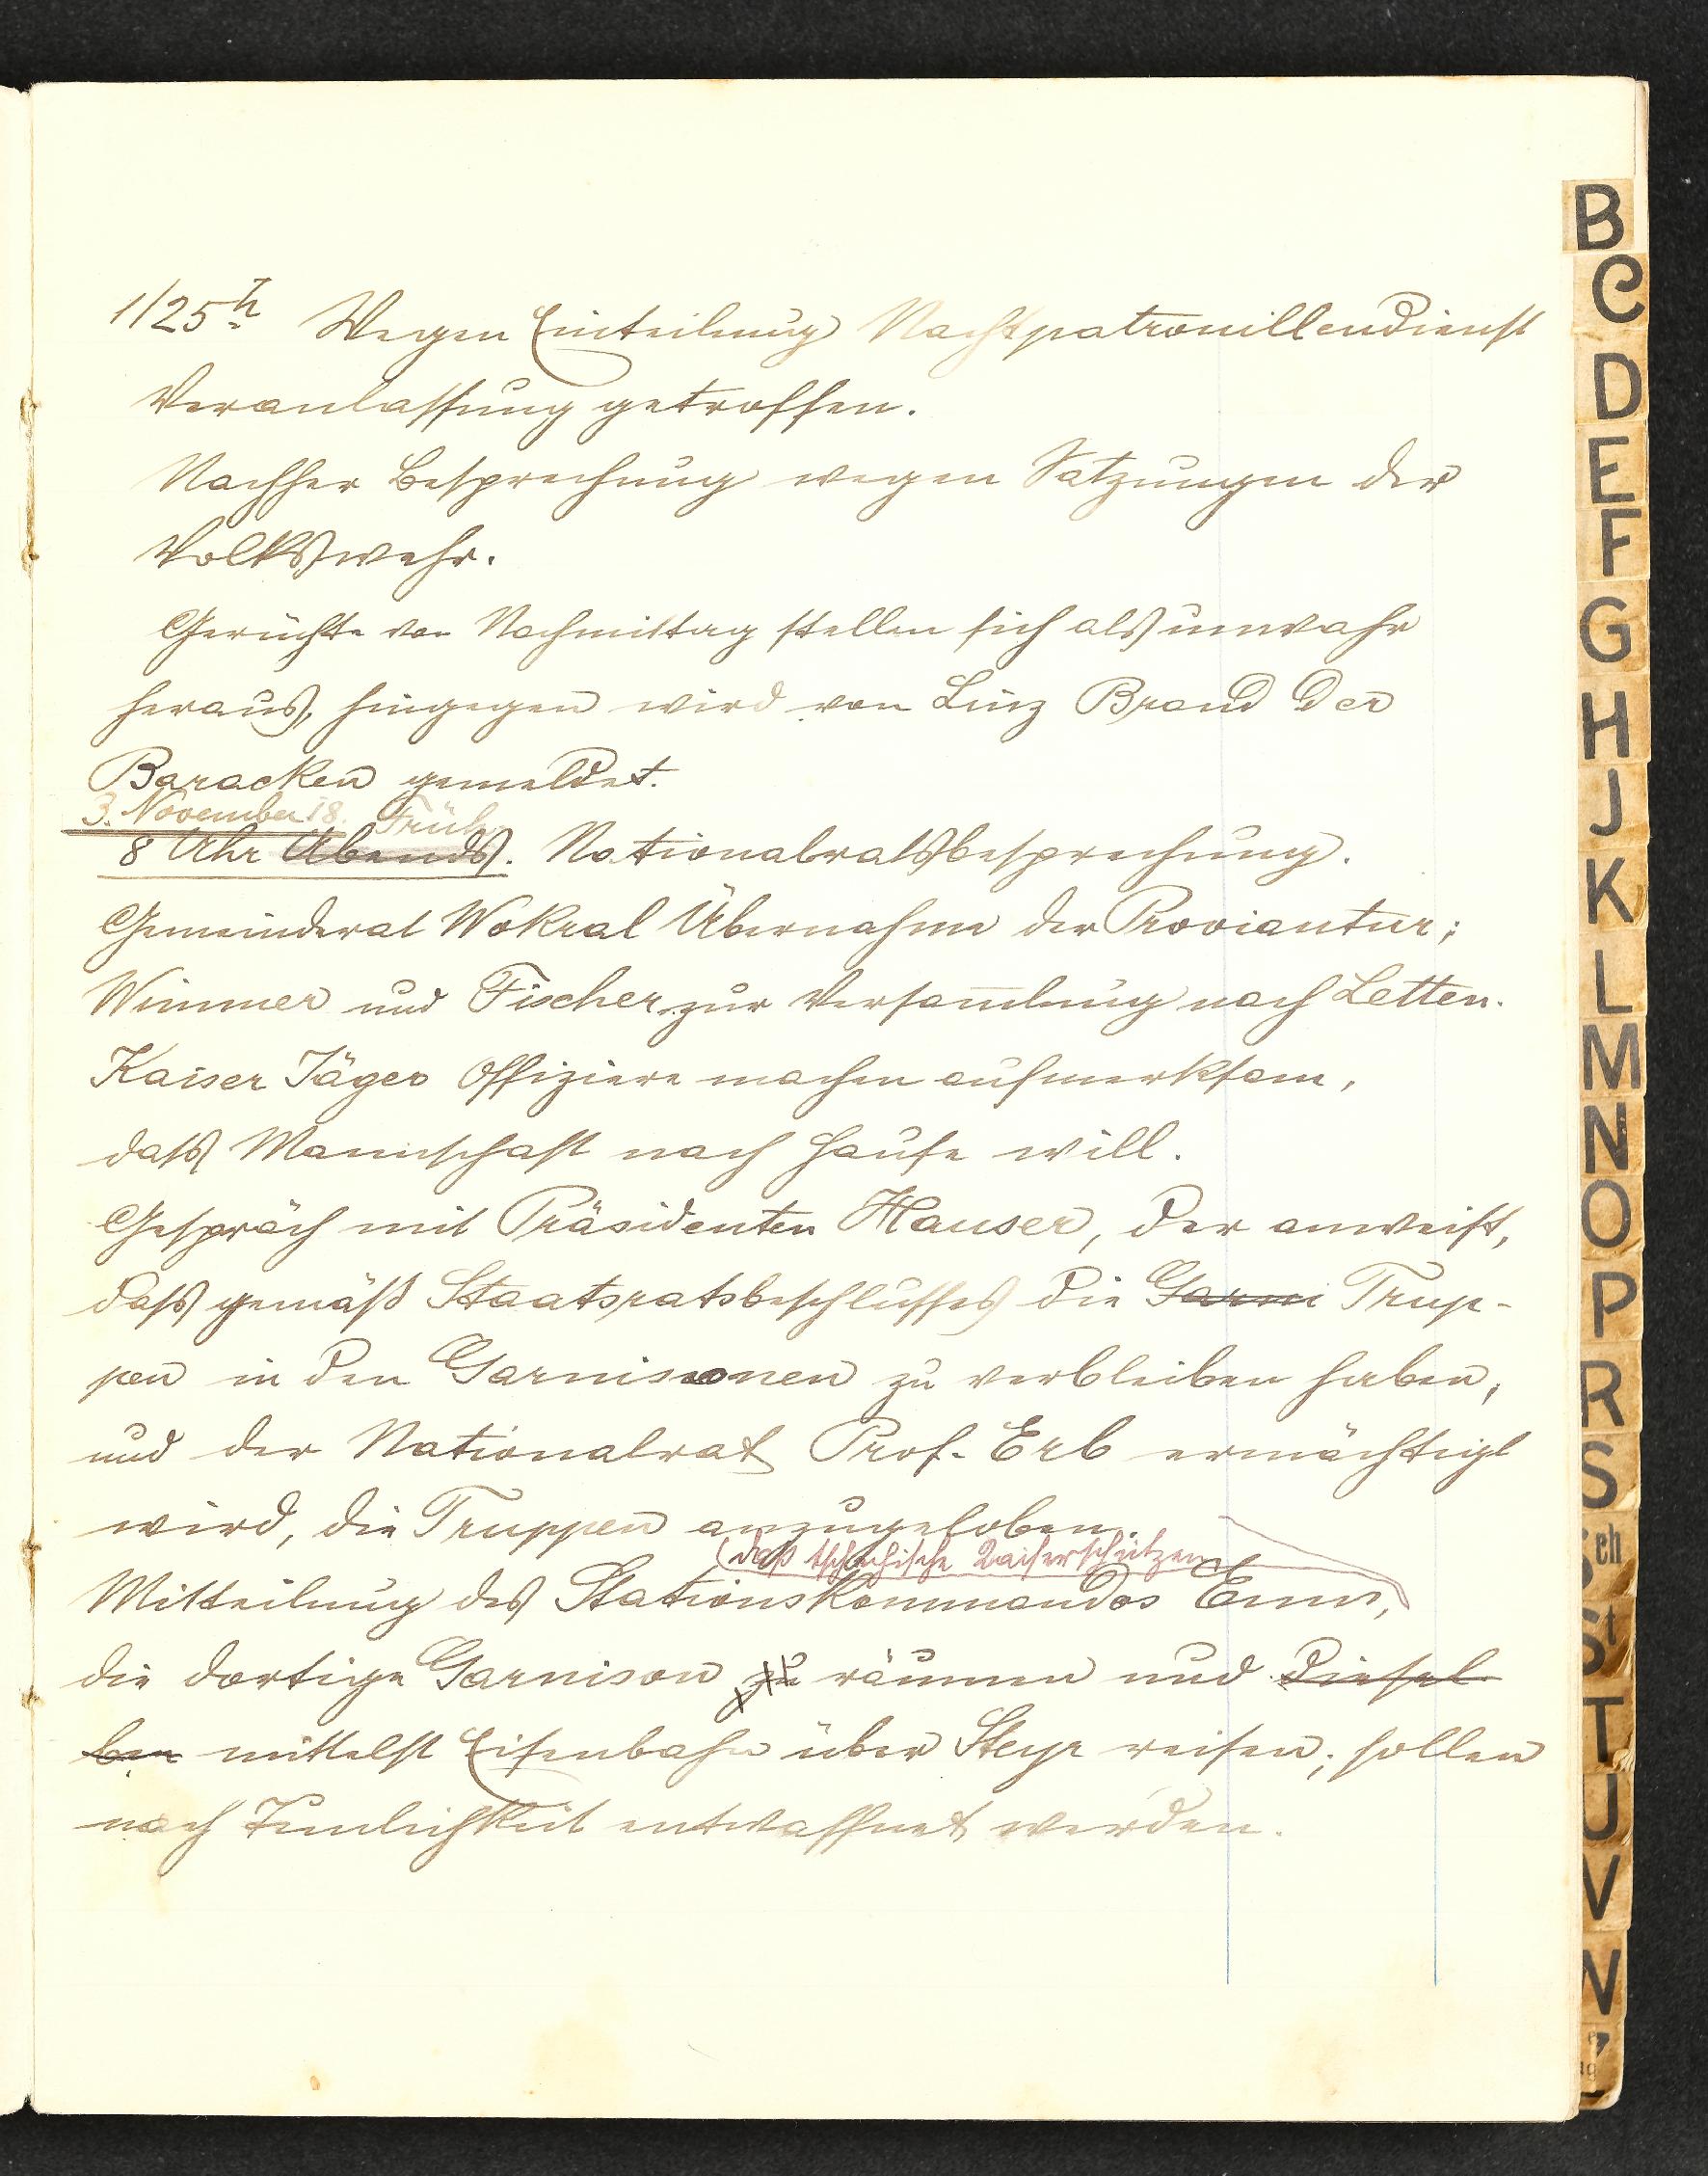 1/25h Wegen Einteilung Nachtpatrouillendienst
Veranlassung getroffen.
Nachher Besprechung wegen Satzungen der
Volkswehr.
Gerüchte von Nachmittag stellen sich als unwahr
heraus, hingegen wird von Linz Brand der
Baracken gemeldet.
3. November 18. Früh
8 Uhr Abends. Nationalratsbesprechung.
Gemeinderat Wokral Übernahme der Proviantur;
Wimmer und Fischer zur Versam̅lung nach Letten.
Kaiser Jäger Offiziere machen aufmerksam,
dass Mannschaft nach Hause will.
Gespräch mit Präsidenten Hauser, der anweist,
dass gemäß Staatsratsbeschlusses die Garni Trup-
pen in den Garnisonen zu verbleiben haben,
und der Nationalrat Prof. Erb ermächtigt
wird, die Truppen anzugeloben.
(daß tschechische Kaiserschützen
Mitteilung des Stationskommandos Enns,
die dortige Garnison zu räumen und diesel
ben mittelst Eisenbahn über Steyr reisen; sollen
nach Tunlichkeit entwaffnet werden.
B
C
D
E
F
G
H
J
K
L
M
N
O
P
R
S
Sch
St
T
U
V
W